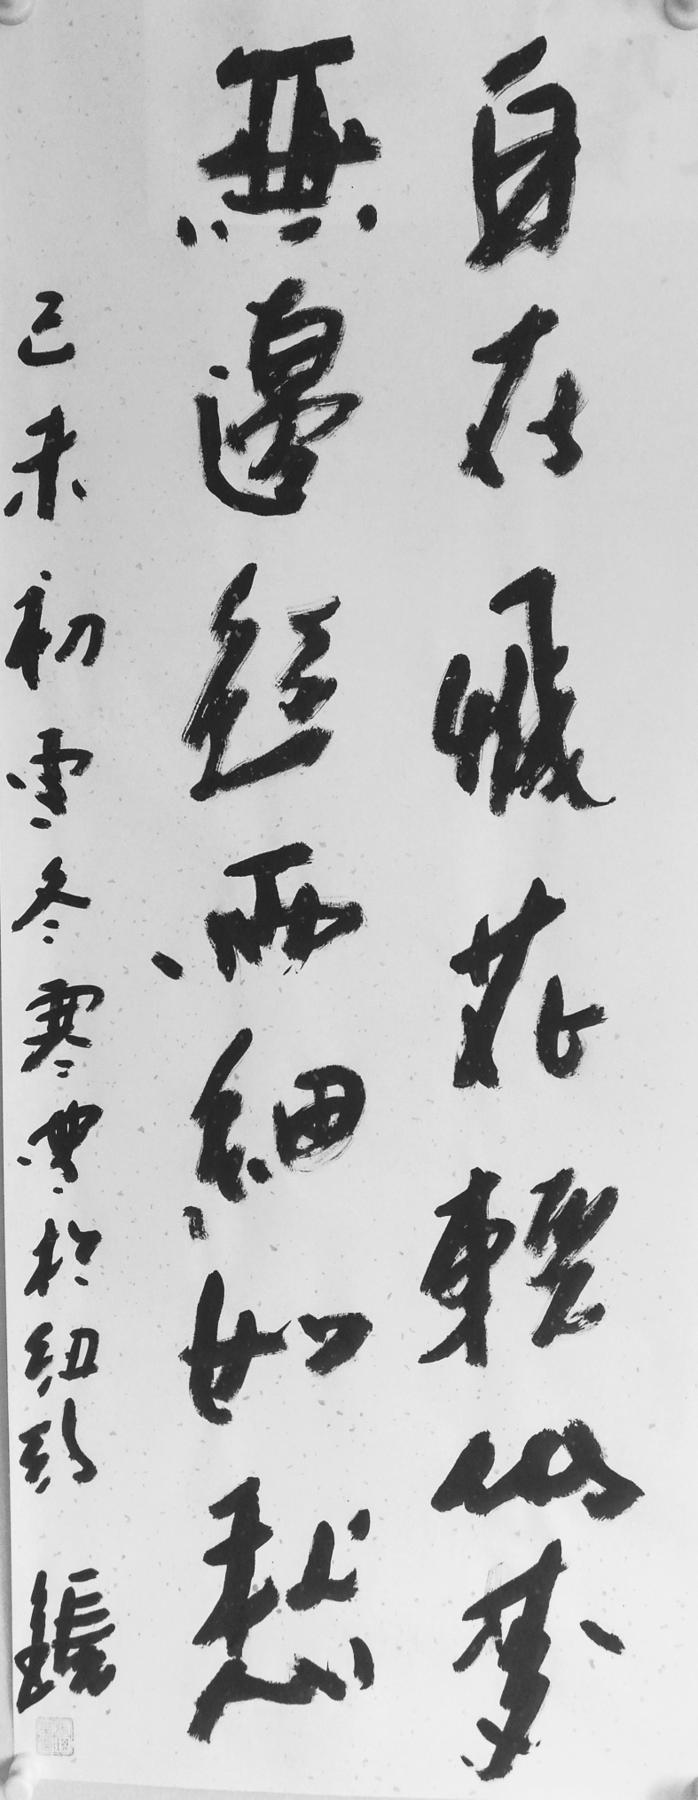 自在飛花輕似夢
無邊絲雨細如愁
己未初雪冬寒雪於紐約